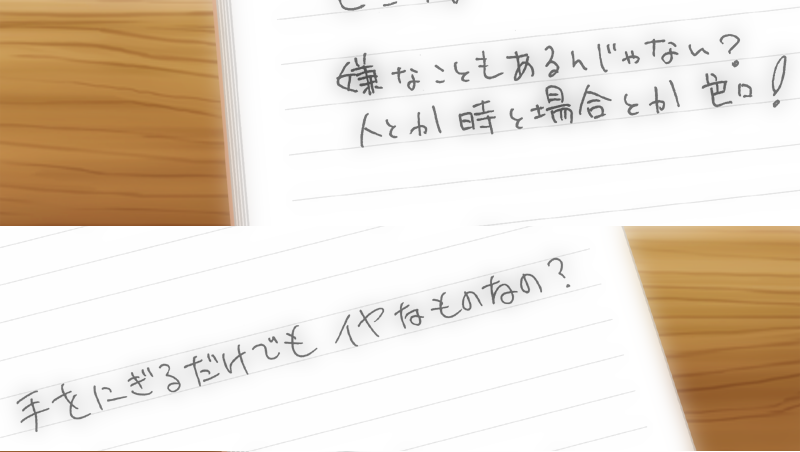 嫌なこともあるんじゃない?
人とか時と場合とか色口!
手をにぎるだけでもイヤなものなの?